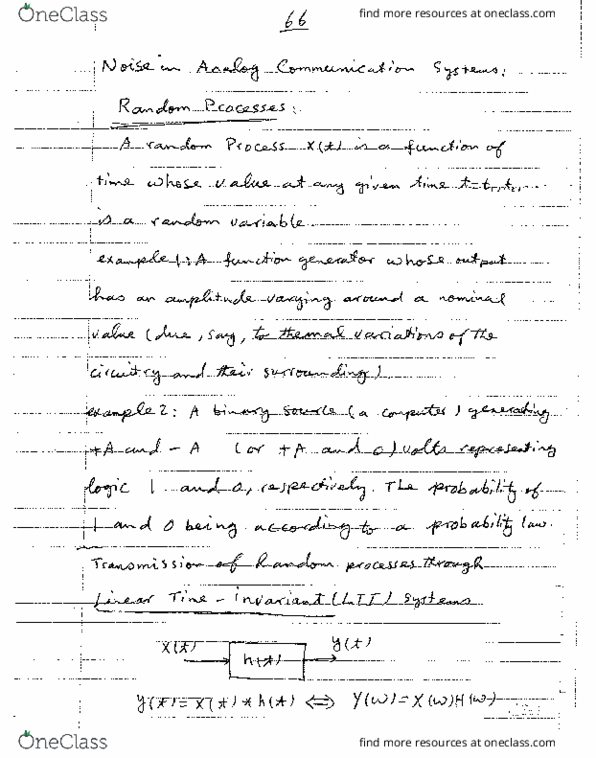 OneClass
find more resources at oneclass.com
66
Noise in Analog Communication Systems:
Random Processes:
A random Process x(t) is a function of
time whose value at any given time t=t₁, t₂, ...
is a random variable
example 1: A function generator whose output
has an amplitude varying around a nominal
value (due, say, to themal variations of the
circuitry and their surrounding)
example 2: A binary source (a computer) generating
+A and -A (or +A and 0) volts representing
logic 1 and 0, respectively. The probability of
1 and 0 being according to a probability law.
Transmission of Random processes through
Linear Time-Invariant (LTI) Systems
X(t) h(t) y(t)
y(t) = x(t) * h(t) ⟺ Y(w) = X(w)H(w)
OneClass
find more resources at oneclass.com